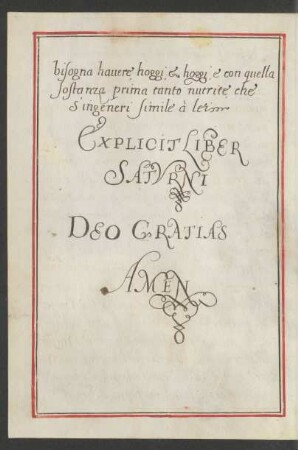 bisogna havere hoggi, & hoggi, e con quella
sostanza prima tanto nutrite che
s'ingeneri simile à lei
EXPLICIT LIBER
SATVRNI
DEO GRATIAS
AMEN